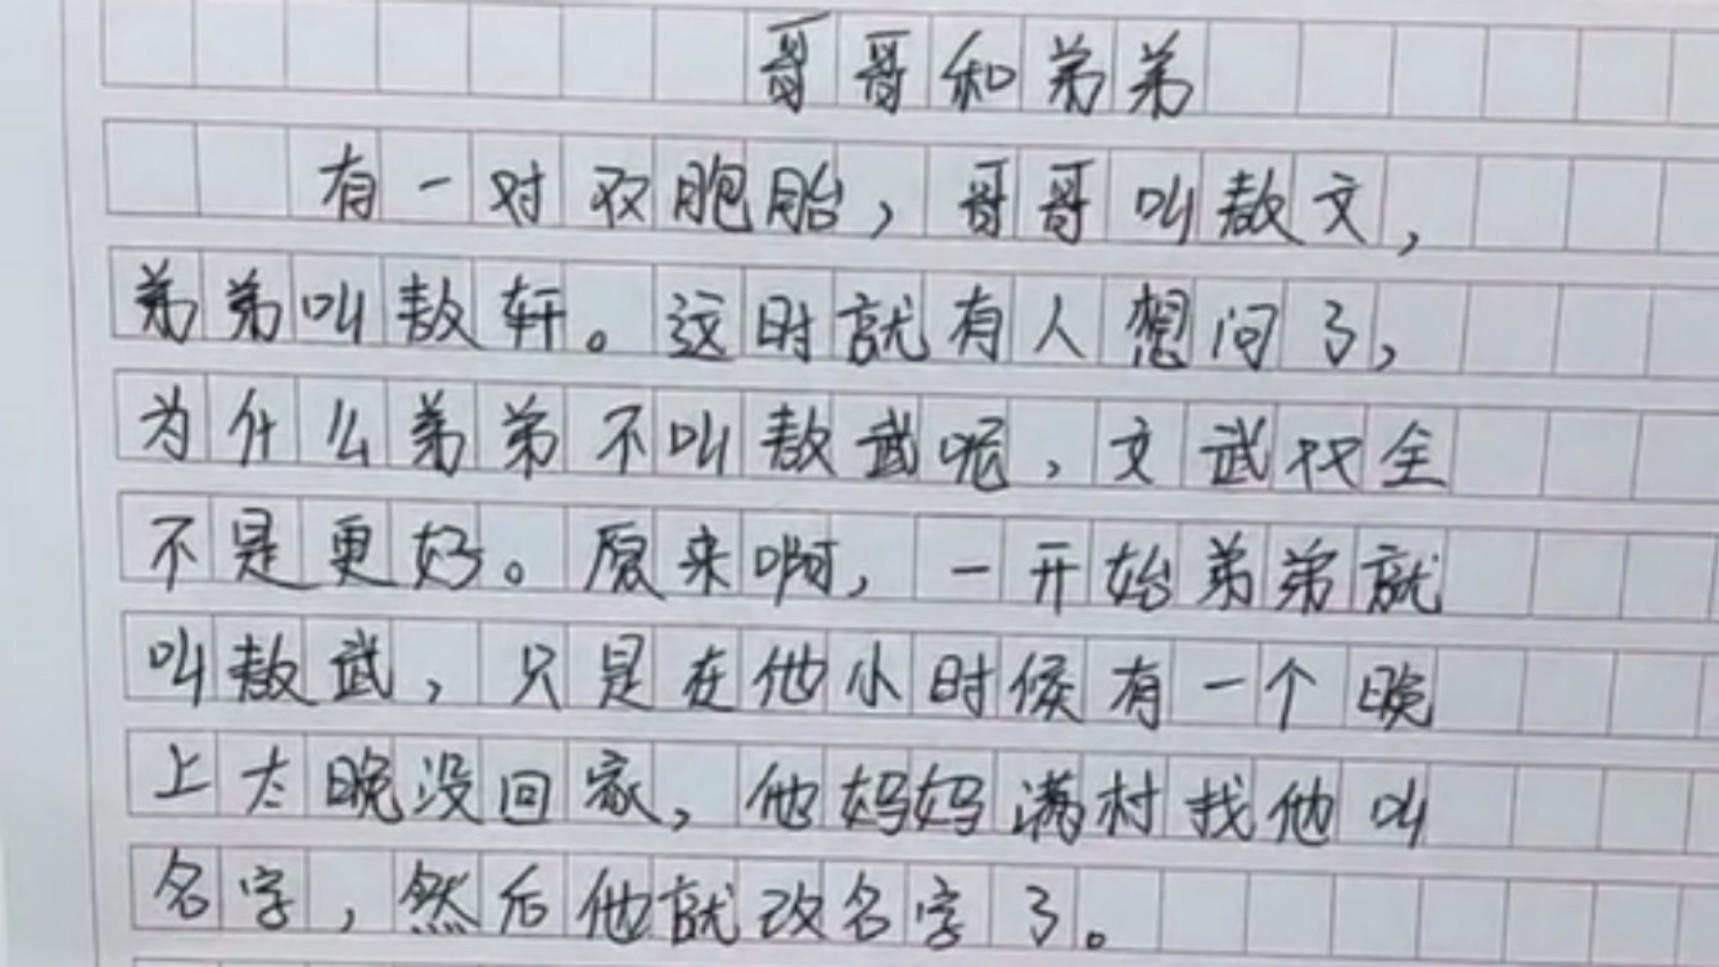 哥哥和弟弟
有一对双胞胎,哥哥叫敖文,
弟弟叫敖轩。这时就有人想问了,
为什么弟弟不叫敖武呢,文武双全
不是更好。原来啊,一开始弟弟就
叫敖武,只是在他小时候有一个晚
上太晚没回家,他妈妈满村找他叫
名字,然后他就改名字了。